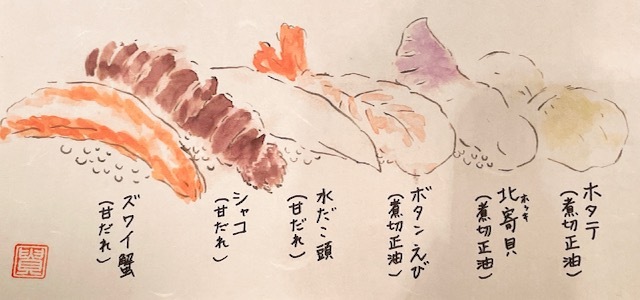 ホタテ
(煮切正油)
北寄貝
ホッキ
(煮切正油)
ボタンえび
(煮切正油)
水だこ頭
(甘だれ)
シャコ
(甘だれ)
ズワイ蟹
(甘だれ)